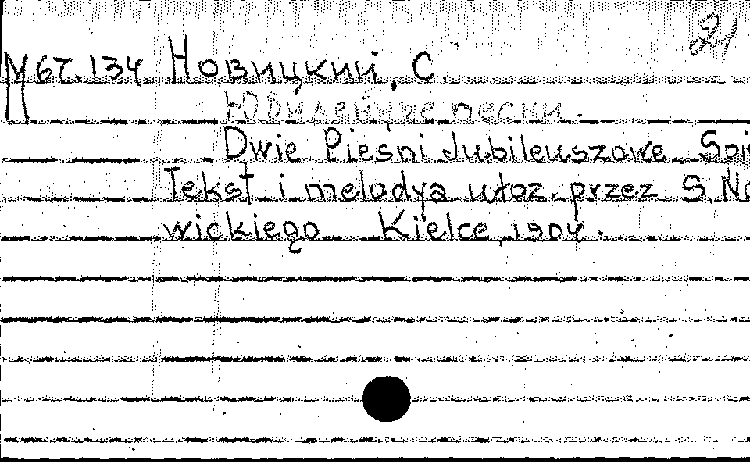 21
М 67.134 Новицкий, С.
Юбилейные песни.
Dwie Piesni Jubileuszowe. Spi
Tekst i melodya ułoz. przez S. No
wickiego Kielce, 1904.